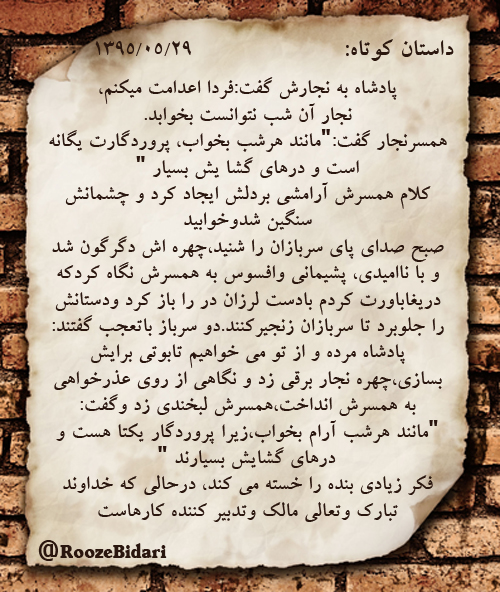 داستان کوتاه: ۱۳۹۵/۰۵/۲۹
پادشاه به نجارش گفت:فردا اعدامت میکنم،
نجار آن شب نتوانست بخوابد.
همسرنجار گفت:"مانند هرشب بخواب، پروردگارت یگانه
است و درهای گشا یش بسیار "
کلام همسرش آرامشی بردلش ایجاد کرد و چشمانش
سنگین شدوخوابید
صبح صدای پای سربازان را شنید،چهره اش دگرگون شد
و با ناامیدی، پشیمانی وافسوس به همسرش نگاه کردکه
دریغاباورت کردم بادست لرزان در را باز کرد ودستانش
را جلوبرد تا سربازان زنجیرکنند.دو سرباز باتعجب گفتند:
پادشاه مرده و از تو می خواهیم تابوتی برایش
بسازی،چهره نجار برقی زد و نگاهی از روی عذرخواهی
به همسرش انداخت،همسرش لبخندی زد وگفت:
"مانند هرشب آرام بخواب،زیرا پروردگار یکتا هست و
درهای گشایش بسیارند "
فکر زیادی بنده را خسته می کند، درحالی که خداوند
تبارک وتعالی مالک وتدبیر کننده کارهاست
@RoozeBidari